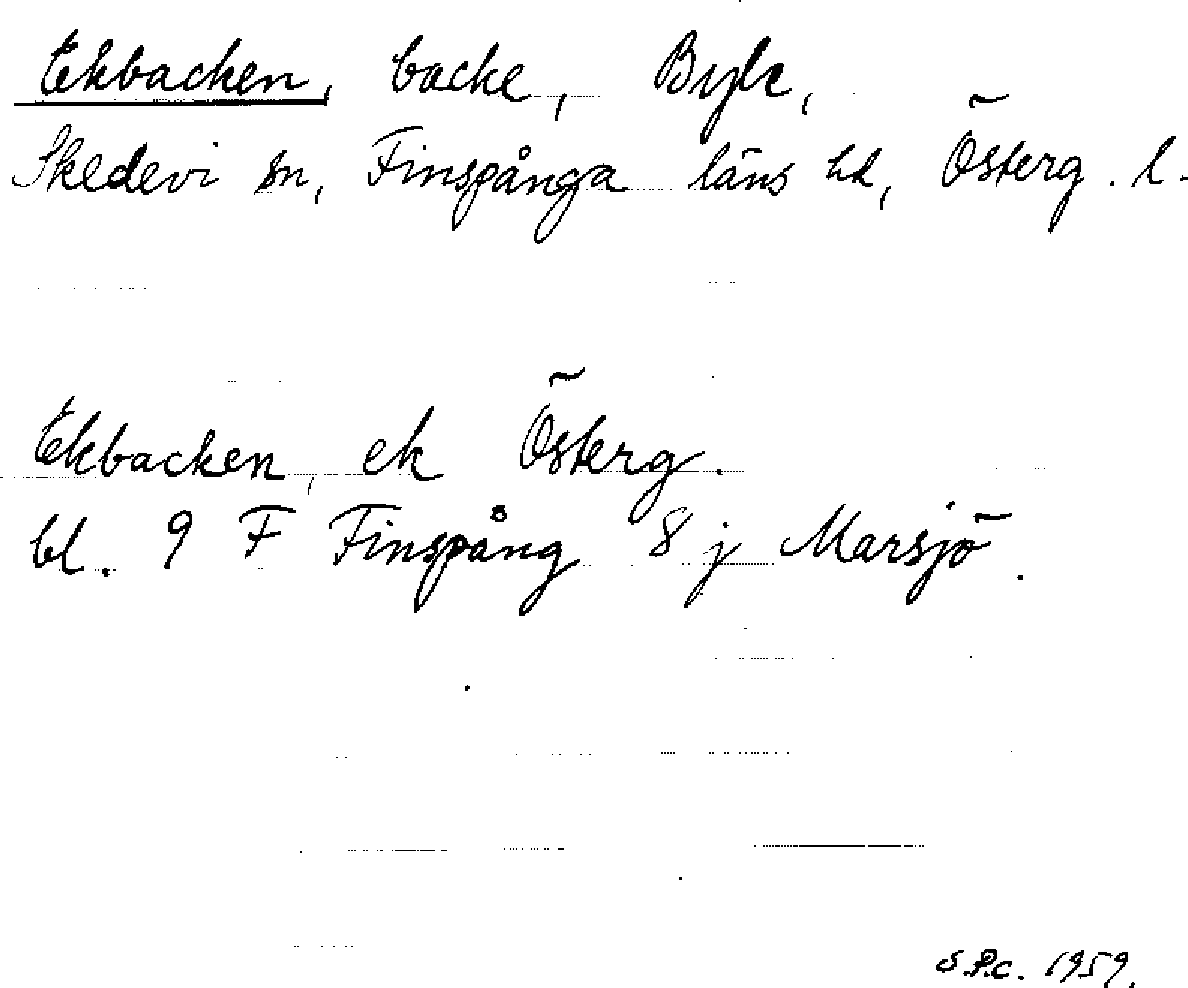 Ekbacken, backe, Byle,
Skedevi sn, Finspånga läns hd, Österg. l.
Ekbacken, ek Österg.
bl. 9 F Finspång 8 j Marsjö.
S.P.c. 1959.